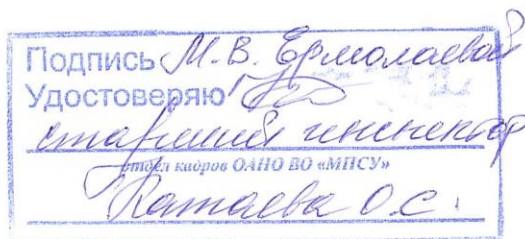 Подпись М.В. Ермолаевой
Удостоверяю
старший инспектор
отдел кадров ОАНО ВО «МПСУ»
Катаева О.С.